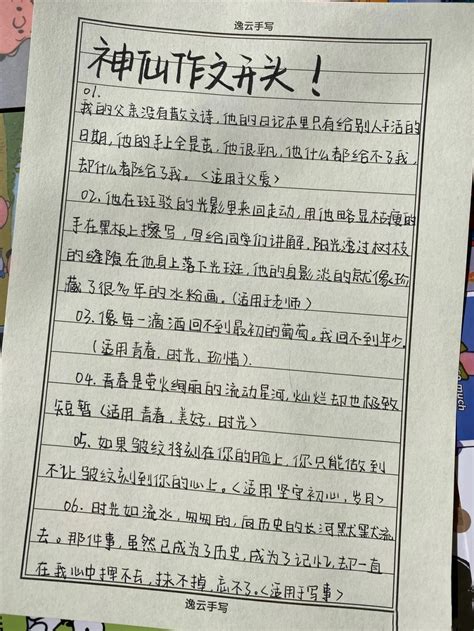 逸云手写
神仙作文开头！
01.
我的父亲没有散文诗，他的日记本里只有给别人干活的
日期，他的手上全是茧，他很平凡，他什么都给不了我，
却什么都给了我。<适用于父爱>
02，他在斑驳的光影里来回走动，用他略显枯瘦的
手在黑板上擦写，写给同学们讲解，阳光透过树枝
的缝隙在他身上落下光斑，他的身影淡的就像珍
藏了很多年的水粉画。(适用于老师)
03.像每一滴酒回不到最初的葡萄。我回不到年少.
(适用青春，时光，珍惜).
04.青春是萤火绚丽的流动星河，灿烂却也极致
短暂(适用青春，美好，时光>
05.如果皱纹将刻在你的脸上，你只能做到
不让皱纹刻到你的心上。<适用坚守初心，岁月>
06.时光如流水，匆匆的，向历史的长河默默流
去。那件事，虽然已成为了历史，成为了记忆，却一直
在我心中挥不去，抹不掉，忘不了。<适用于写事>
逸云手写
much